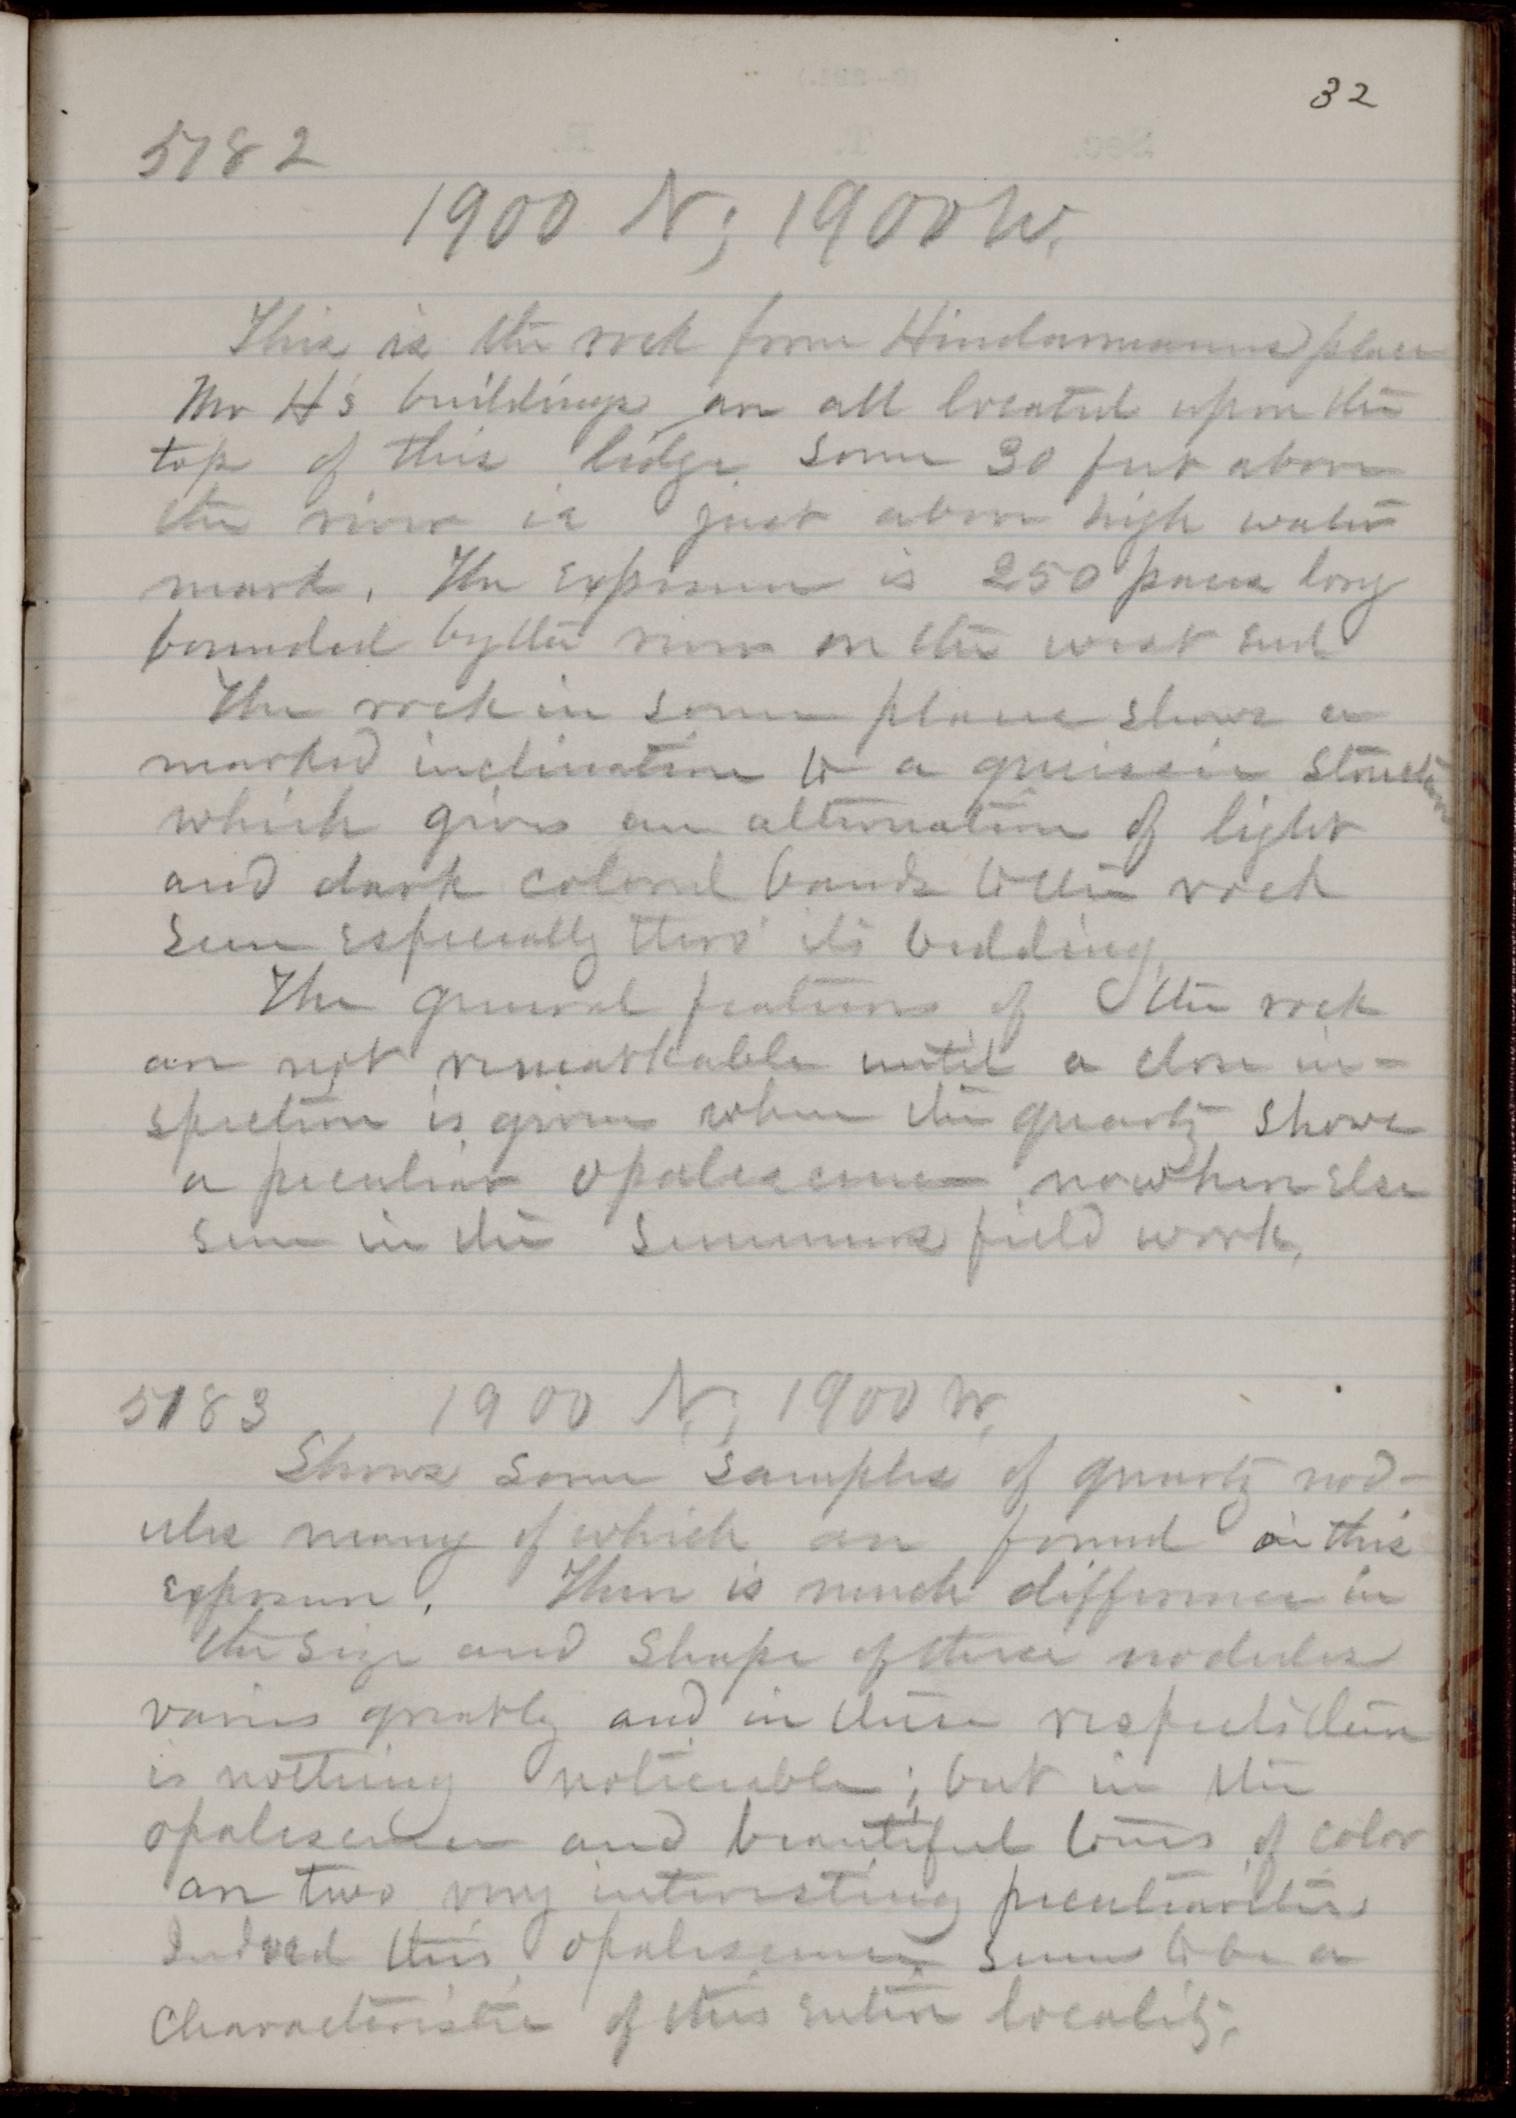 32
5182
1900 N; 1900 W.
This is the rock from Hindermanns place
Mr H's buildings are all located upon the
top of this ledge some 30 feet above
the river ie just above high water
mark. The exposure is 250 paces long
bounded by the river on the west end
The rock in some places shows a
marked inclination to a gneissic structure
which gives an alternation of light
and dark colored bands to the rock
seen especially thro' its bedding.
The general features of the rock
are not remarkable until a close in-
spection is given when the quartz shows
a peculiar opalescence nowhere else
seen in the summers field work.
5183 1900 N; 1900 W.
Shows some samples of quartz nod-
ules many of which are found in this
exposure. There is much difference in
the size and shape of these nodules
varies greatly and in these respects there
is nothing noticeable; but in the
opalescence and beautiful tones of color
are two very interesting peculiarities
Indeed this opalescence seems to be a
characteristic of this entire locality.